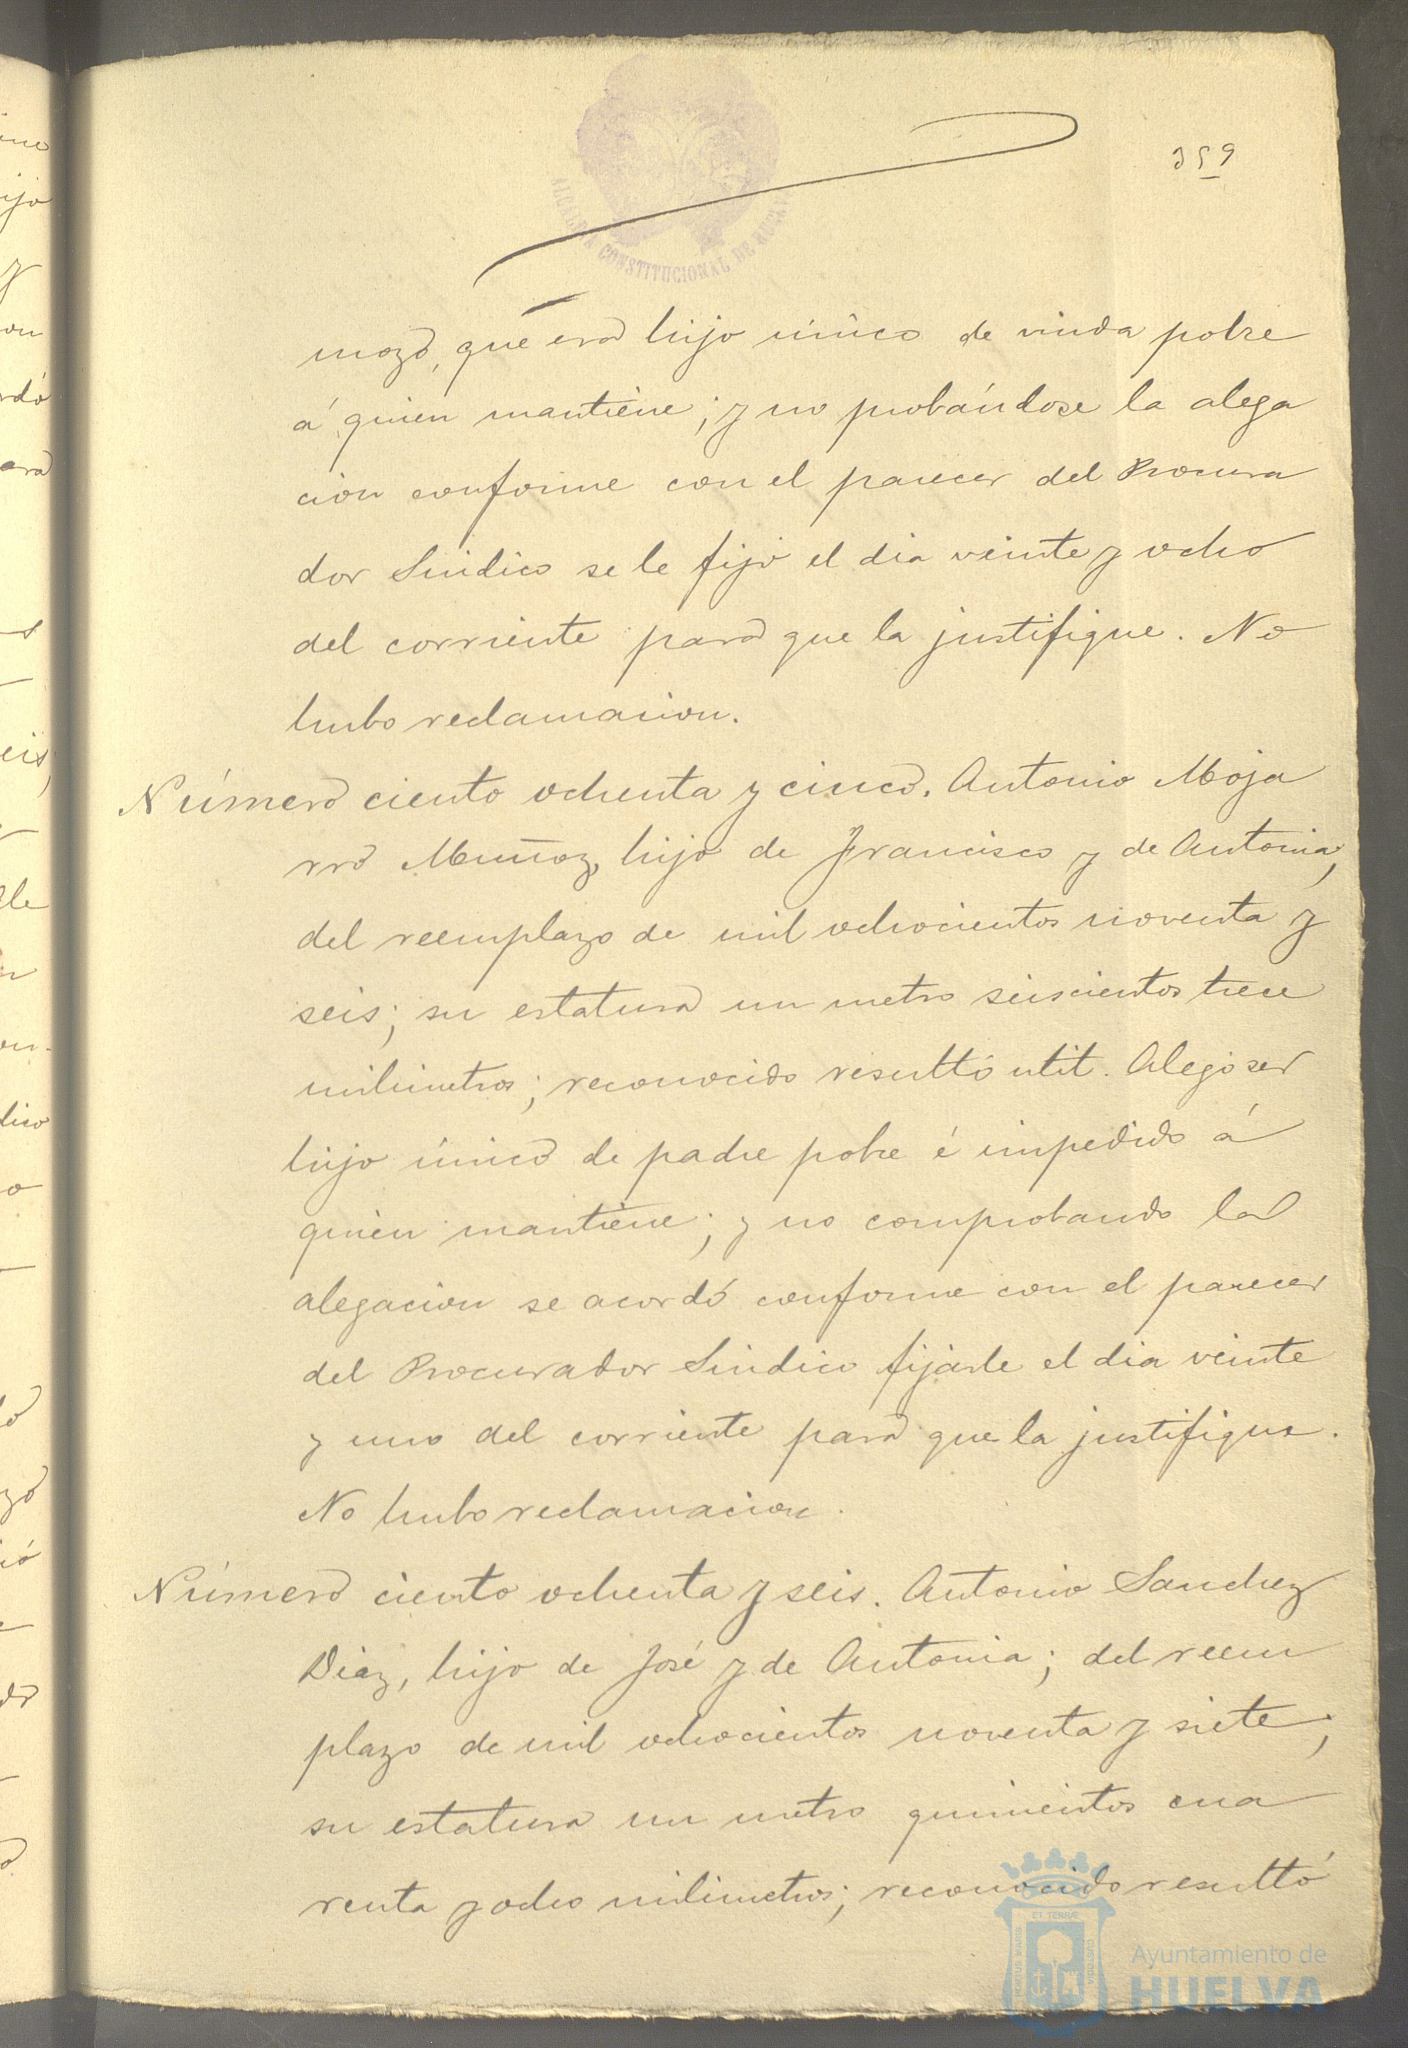 359
ALCALDIA CONSTITUCIONAL DE HUELVA
mozo, que era hijo único de viuda pobre
á quien mantiene; y no probándose la alega
cion conforme con el parecer del Procura
dor Sindico se le fijó el dia veinte y ocho
del corriente para que la justifique. No
hubo reclamacion.
Número ciento ochenta y cinco. Antonio Moja
rro Muñoz, hijo de Francisco y de Antonia,
del reemplazo de mil ochocientos noventa y
seis; su estatura un metro seiscientos trece
milimetros; reconocido resultó util. Alegó ser
hijo único de padre pobre é impedido á
quien mantiene; y no comprobando la
alegacion se acordó conforme con el parecer
del Procurador Sindico fijarle el dia veinte
y uno del corriente para que la justifique.
No hubo reclamacion.
Número ciento ochenta y seis. Antonio Sanchez
Diaz, hijo de José y de Antonia; del reem
plazo de mil ochocientos noventa y siete;
su estatura un metro quinientos cua
renta y ocho milimetros; reconocido resultó
Ayuntamiento de
HUELVA